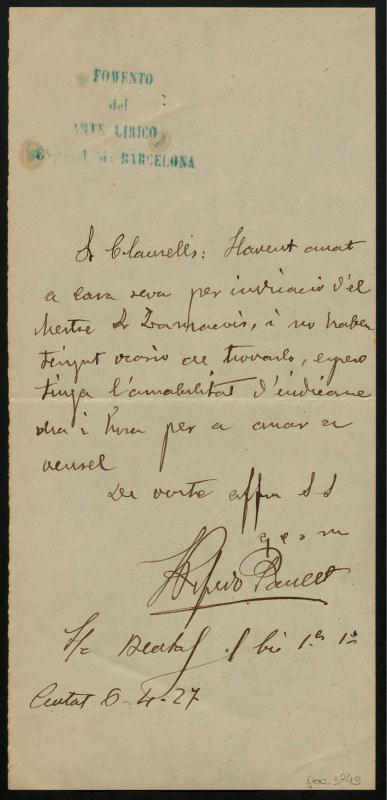 FOMENTO
del
ARTE LÍRICO
BARCELONA
Sr Claurells: Havent anat
a casa seva per indicació d'el
Mestre Sr Zamacois, i no haben
tingut ocasio de trovarlo, espero
tinga l'amabilitat d'indicarme
dia i hora per a anar a
veurel
De vosté affm S S
q e s m
S/c 1er 1a
Ciutat 6-4-27
Doc. 3743